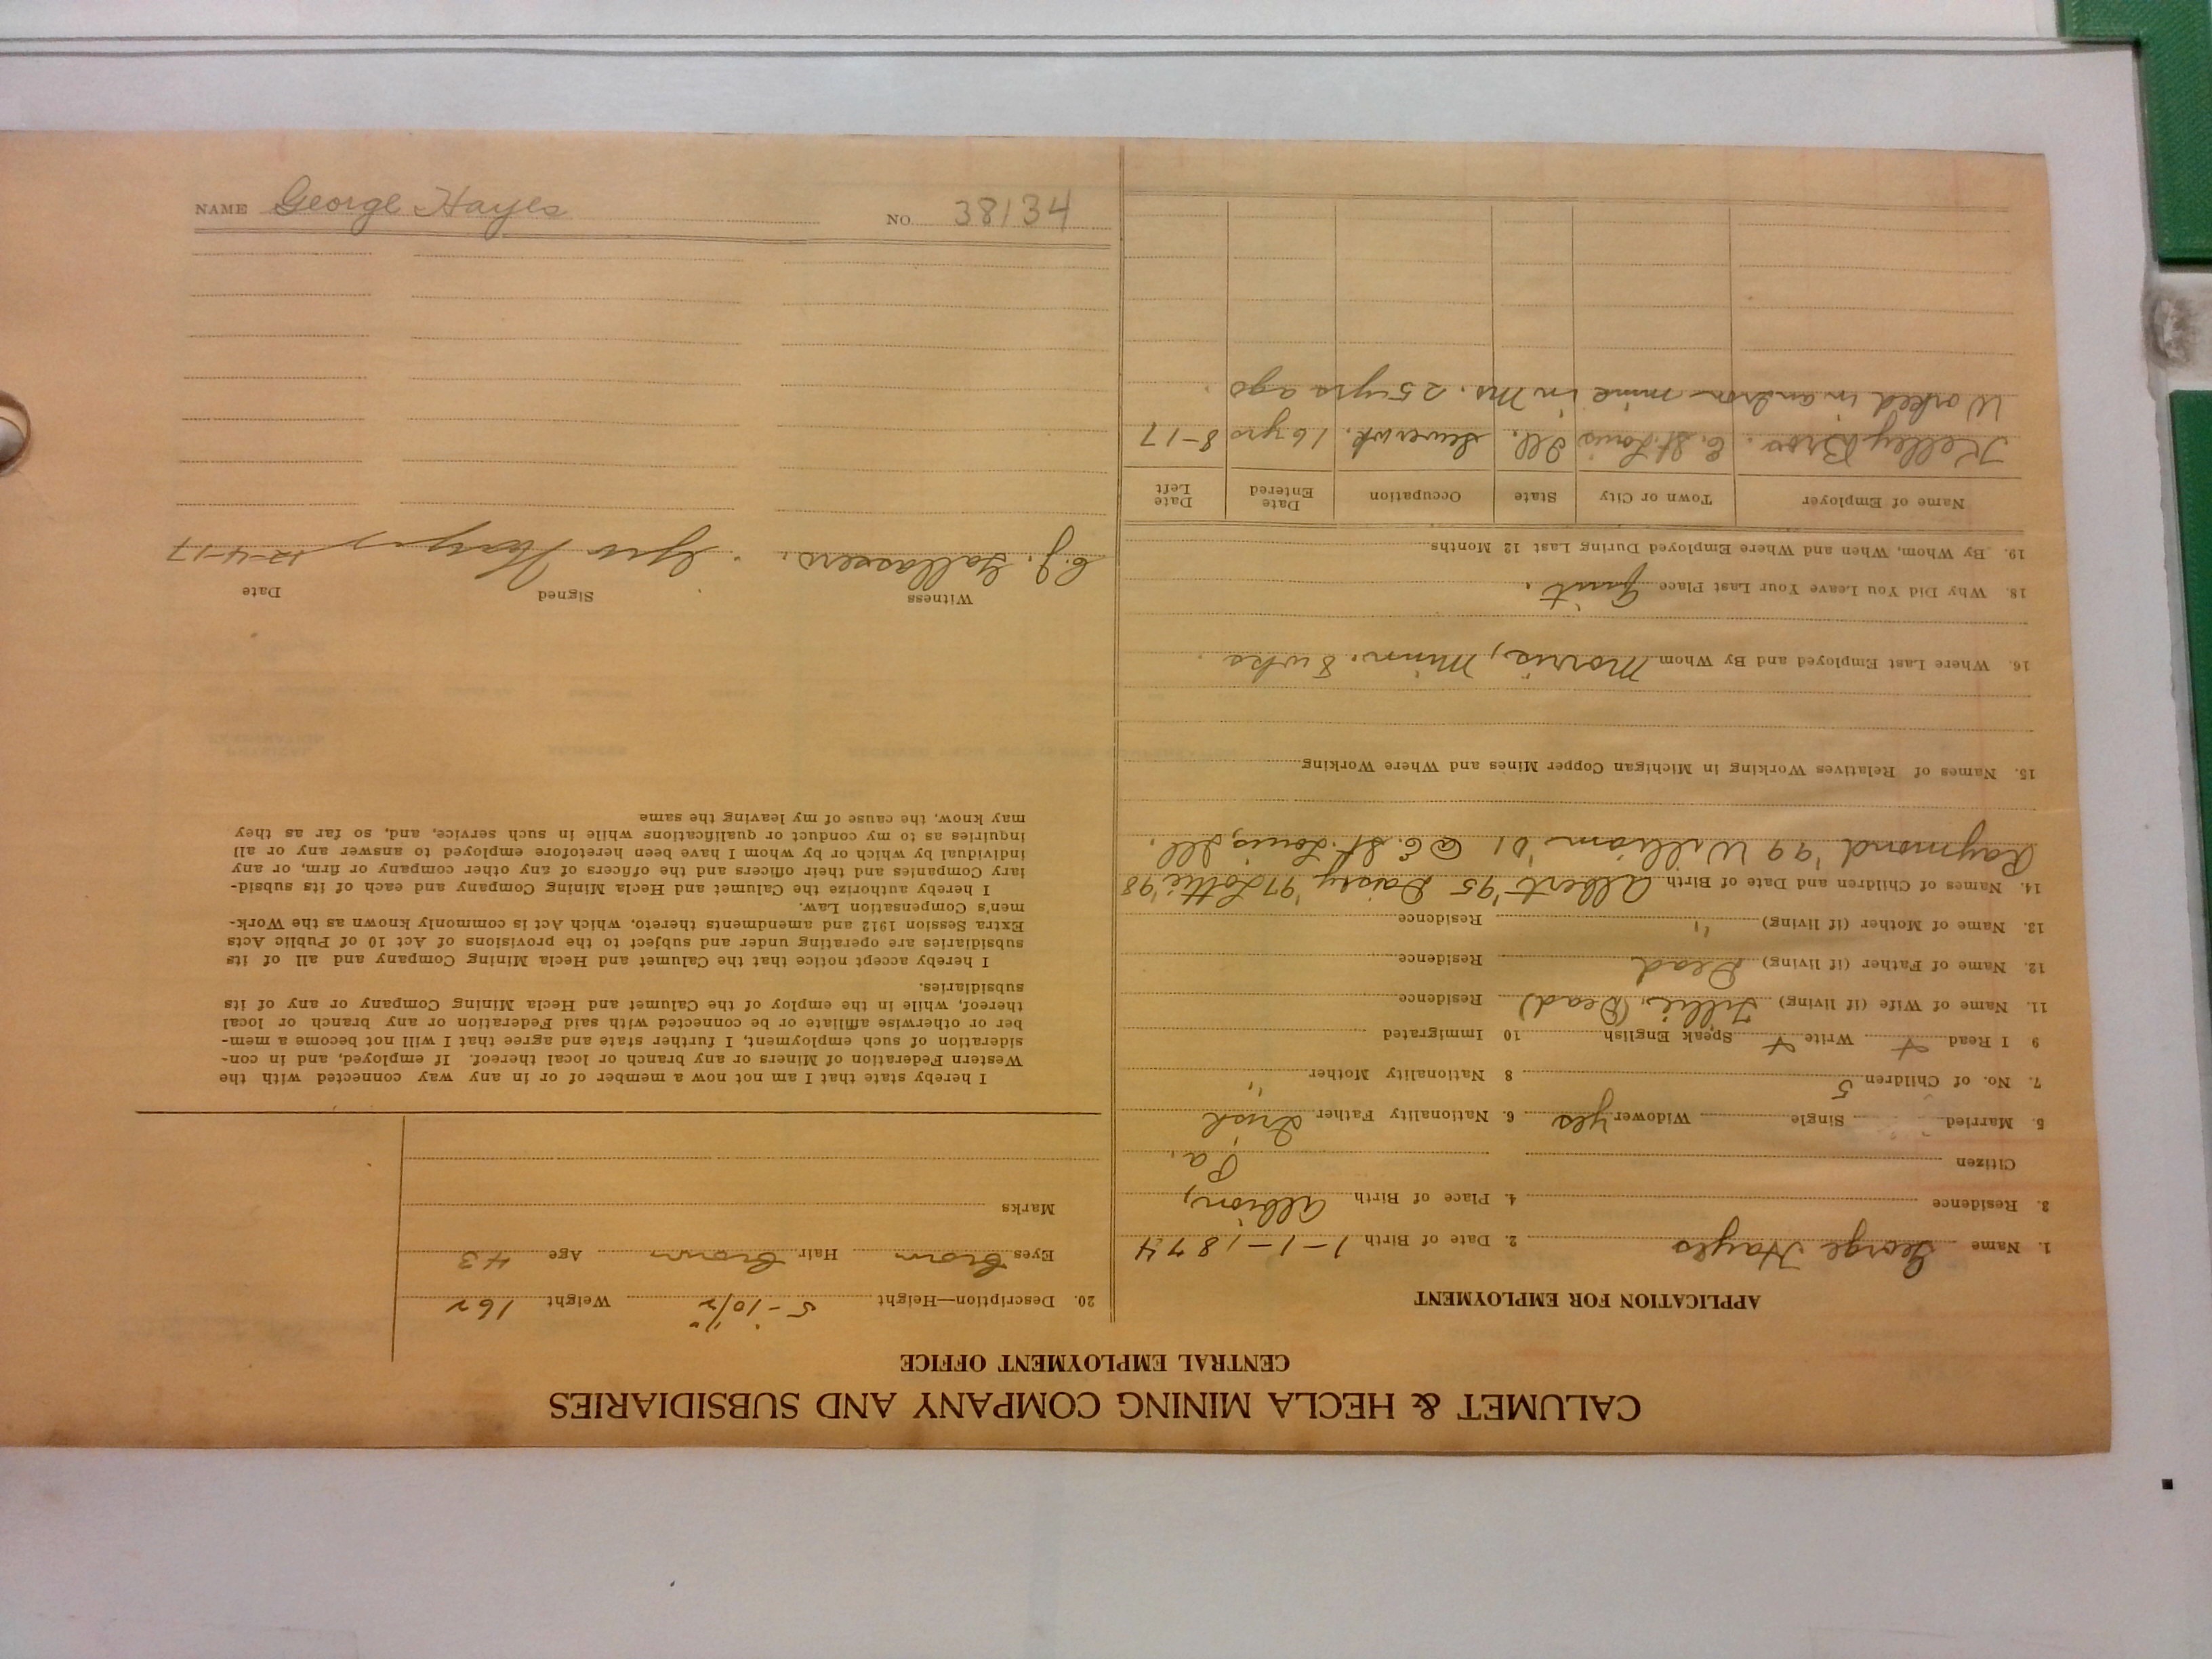 CALUMET & HECLA MINING COMPANY AND SUBSIDIARIES
CENTRAL EMPLOYMENT OFFICE
APPLICATION FOR EMPLOYMENT
1. Name George Hayes 2. Date of Birth 1-1-1874
3. Residence 4. Place of Birth Albion,
Citizen Pa.
5. Married Single Widower yes 6. Nationality Father Irish
7. No. of Children 5 8 Nationality Mother "
9 I Read + Write + Speak English 10 Immigrated
11. Name of Wife (if living) Tillie, (Dead) Residence
12. Name of Father (if living) Dead Residence
13. Name of Mother (if living) " Residence
14. Names of Children and Date of Birth Albert '95 Daisy '97 Lottie '98
Raymond '99 William '01 @ E. St. Louis, Ill.
15. Names of Relatives Working in Michigan Copper Mines and Where Working
16. Where Last Employed and By Whom Morris, Minn. 8 wks.
18. Why Did You Leave Your Last Place Quit.
19. By Whom, When and Where Employed During Last 12 Months
Name of Employer Town or City State Occupation Date Entered Date Left
Kelley Bros. E. St. Louis Ill. Sewer wk. 16 yrs 8-17
Worked in mine in Mo. 25 yrs ago.
20. Description—Height 5'-10 1/2" Weight 162
Eyes brown Hair brown Age 43
Marks
I hereby state that I am not now a member of or in any way connected with the
Western Federation of Miners or any branch or local thereof. If employed, and in con-
sideration of such employment, I further state and agree that I will not become a mem-
ber or otherwise affiliate or be connected with said Federation or any branch or local
thereof, while in the employ of the Calumet and Hecla Mining Company or any of its
subsidiaries.
I hereby accept notice that the Calumet and Hecla Mining Company and all of its
subsidiaries are operating under and subject to the provisions of Act 10 of Public Acts
Extra Session 1912 and amendments thereto, which Act is commonly known as the Work-
men's Compensation Law.
I hereby authorize the Calumet and Hecla Mining Company and each of its subsid-
iary Companies and their officers and the officers of any other company or firm, or any
individual by which or by whom I have been heretofore employed to answer any or all
inquiries as to my conduct or qualifications while in such service, and, so far as they
may know, the cause of my leaving the same
Witness Signed Date
Geo Hayes 12-4-17
NAME George Hayes NO. 38134